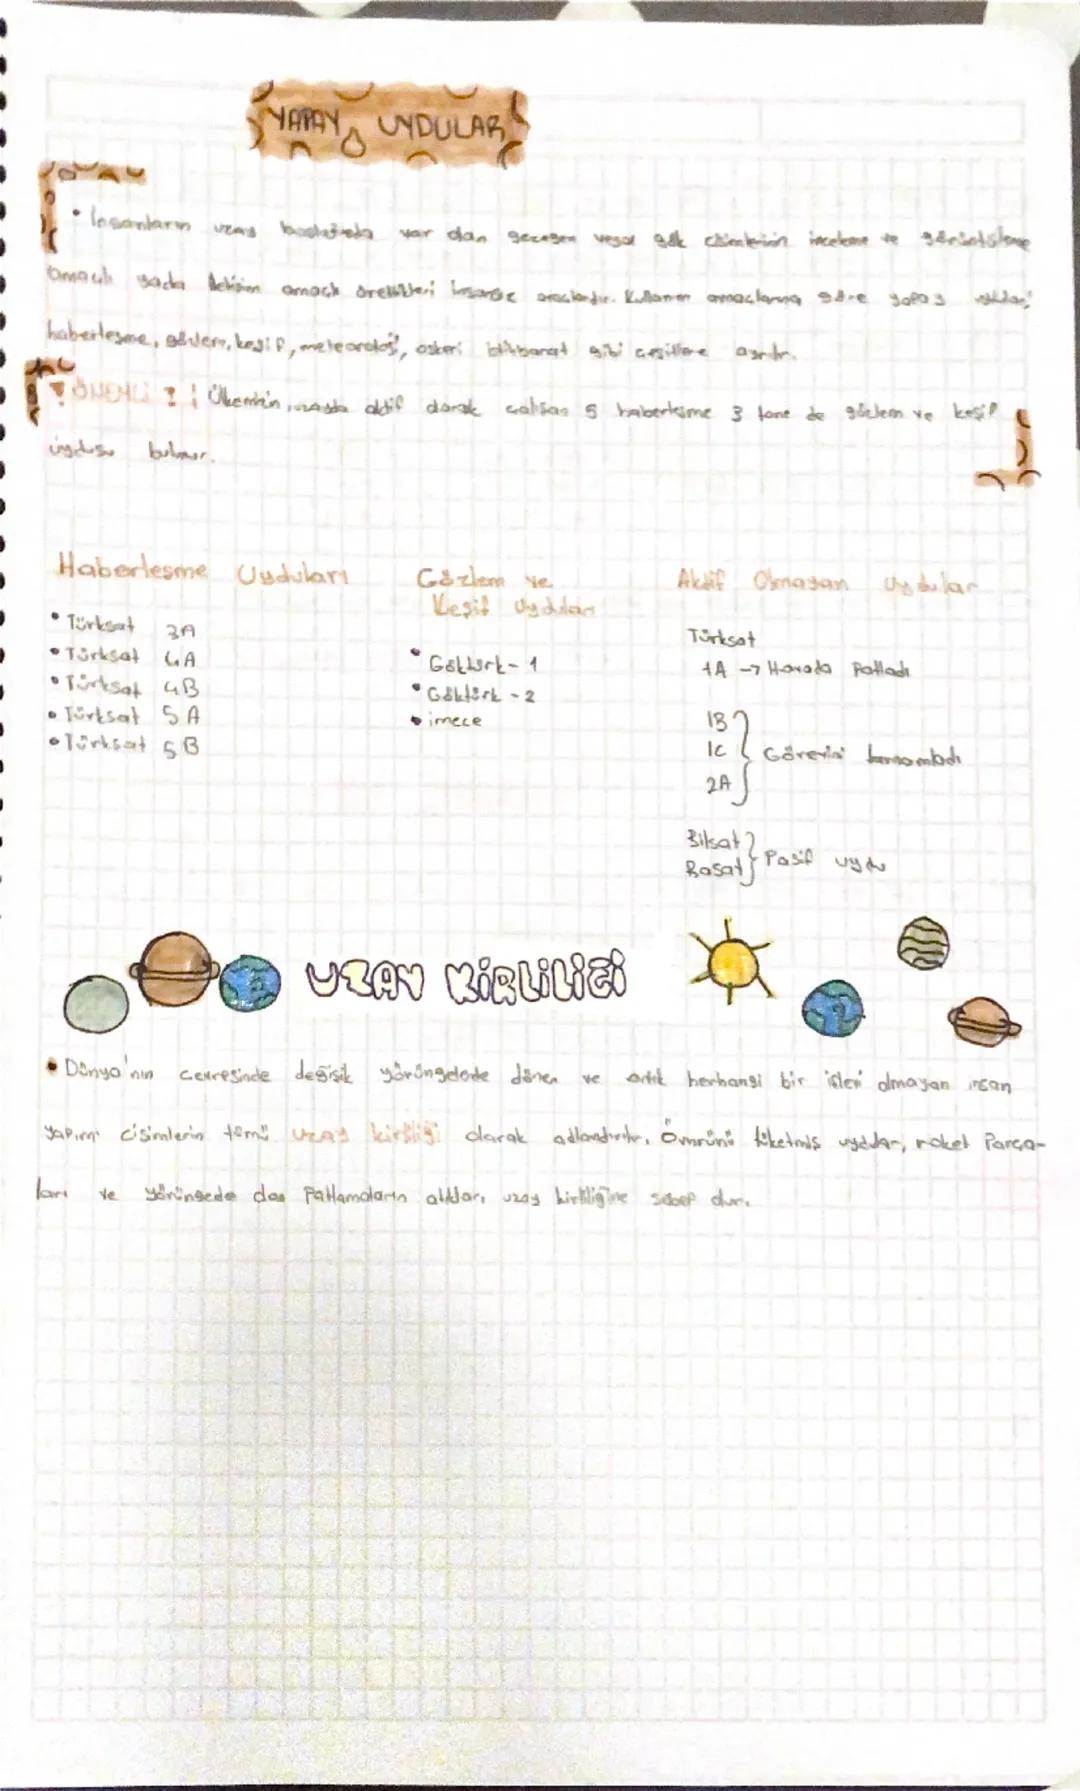 YAPAY UYDULAR
• İnsanların uzay boşluğunda var olan gezegen veya gök cisimlerinin inceleme ve görüntüleme
amaçlı yada iletişim amaçlı ürettikleri insansız araçlardır. Kullanım amaçlarına göre yapay uydular;
haberleşme, gözlem, keşif, meteoroloji, askeri istihbarat gibi çeşitlere ayrılır.
! ÖNEMLİ ! : Ülkemizin, uzayda aktif olarak çalışan 5 haberleşme 3 tane de gözlem ve keşif
uydusu bulunur.
Haberleşme Uyduları
• Türksat 3A
• Türksat 4A
• Türksat 4B
• Türksat 5A
• Türksat 5B
Gözlem ve
Keşif Uyduları
• Göktürk-1
• Göktürk-2
• imece
Aktif Olmayan uydular
Türksat
1A → Havada Patladı
1B
1C Görevini tamamladı
2A
Bilsat
Rasat Pasif uydu
UZAY KİRLİLİĞİ
• Dünya'nın çevresinde değişik yörüngelerde dönen ve artık herhangi bir işlevi olmayan insan
yapımı cisimlerin tümü uzay kirliliği olarak adlandırılır. Ömrünü tüketmiş uydular, roket Parça-
ları ve yörüngede olan Patlamaların atıkları, uzay kirliliğine sebep olur.